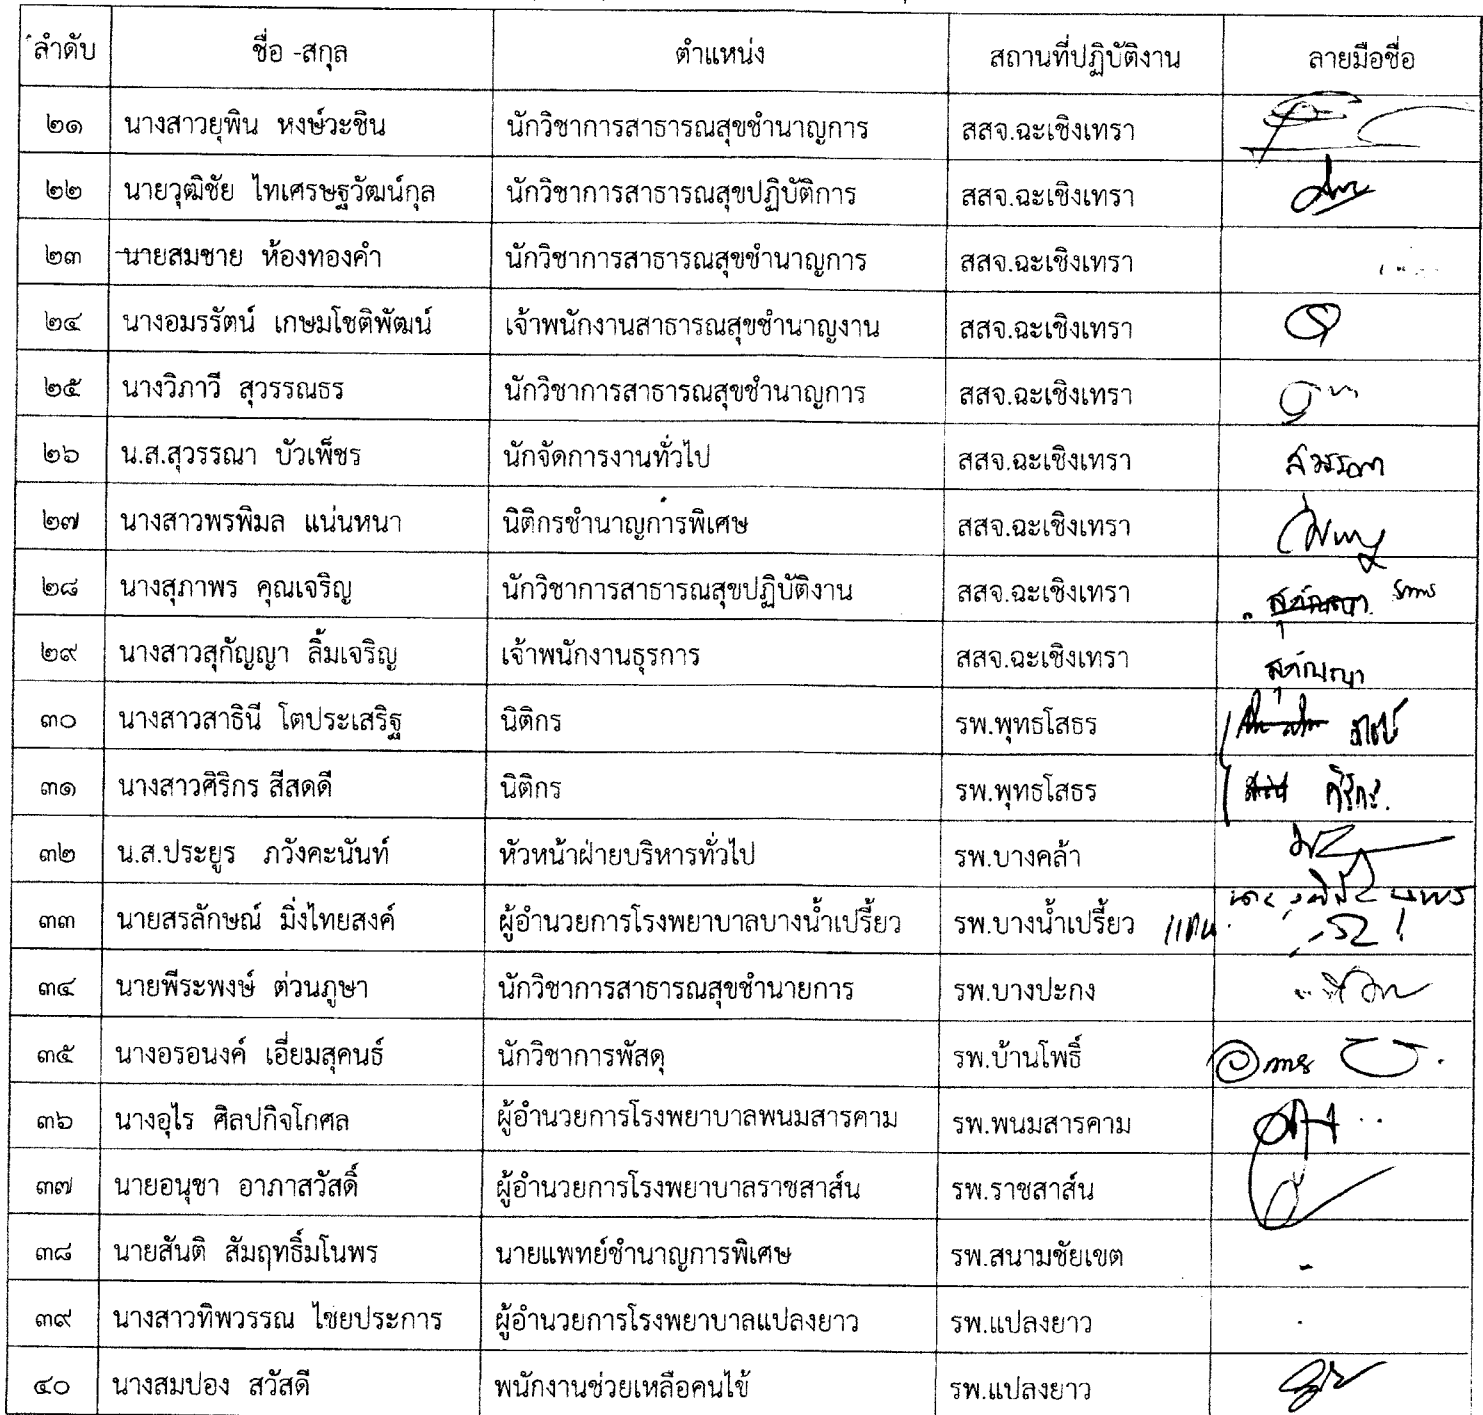 ลำดับ ชื่อ -สกุล ตำแหน่ง สถานที่ปฏิบัติงาน ลายมือชื่อ
๒๑ นางสาวยุพิน หงษ์วะชิน นักวิชาการสาธารณสุขชำนาญการ สสจ.ฉะเชิงเทรา
๒๒ นายวุฒิชัย ไทเศรษฐวัฒน์กุล นักวิชาการสาธารณสุขปฏิบัติการ สสจ.ฉะเชิงเทรา
๒๓ นายสมชาย ห้องทองคำ นักวิชาการสาธารณสุขชำนาญการ สสจ.ฉะเชิงเทรา
๒๔ นางอมรรัตน์ เกษมโชติพัฒน์ เจ้าพนักงานสาธารณสุขชำนาญงาน สสจ.ฉะเชิงเทรา
๒๕ นางวิภาวี สุวรรณธร นักวิชาการสาธารณสุขชำนาญการ สสจ.ฉะเชิงเทรา
๒๖ น.ส.สุวรรณา บัวเพ็ชร นักจัดการงานทั่วไป สสจ.ฉะเชิงเทรา สุวรรณา
๒๗ นางสาวพรพิมล แน่นหนา นิติกรชำนาญการพิเศษ สสจ.ฉะเชิงเทรา
๒๘ นางสุภาพร คุณเจริญ นักวิชาการสาธารณสุขปฏิบัติงาน สสจ.ฉะเชิงเทรา
๒๙ นางสาวสุกัญญา ลิ้มเจริญ เจ้าพนักงานธุรการ สสจ.ฉะเชิงเทรา สุกัญญา
๓๐ นางสาวสาธินี โตประเสริฐ นิติกร รพ.พุทธโสธร
๓๑ นางสาวศิริกร สีสดดี นิติกร รพ.พุทธโสธร ศิริกร.
๓๒ น.ส.ประยูร ภวังคะนันท์ หัวหน้าฝ่ายบริหารทั่วไป รพ.บางคล้า
๓๓ นายสรลักษณ์ มิ่งไทยสงค์ ผู้อำนวยการโรงพยาบาลบางน้ำเปรี้ยว รพ.บางน้ำเปรี้ยว แทน
๓๔ นายพีระพงษ์ ต่วนภูษา นักวิชาการสาธารณสุขชำนายการ รพ.บางปะกง
๓๕ นางอรอนงค์ เอี่ยมสุคนธ์ นักวิชาการพัสดุ รพ.บ้านโพธิ์
๓๖ นางอุไร ศิลปกิจโกศล ผู้อำนวยการโรงพยาบาลพนมสารคาม รพ.พนมสารคาม
๓๗ นายอนุชา อาภาสวัสดิ์ ผู้อำนวยการโรงพยาบาลราชสาส์น รพ.ราชสาส์น
๓๘ นายสันติ สัมฤทธิ์มโนพร นายแพทย์ชำนาญการพิเศษ รพ.สนามชัยเขต -
๓๙ นางสาวทิพวรรณ ไชยประการ ผู้อำนวยการโรงพยาบาลแปลงยาว รพ.แปลงยาว
๔๐ นางสมปอง สวัสดี พนักงานช่วยเหลือคนไข้ รพ.แปลงยาว